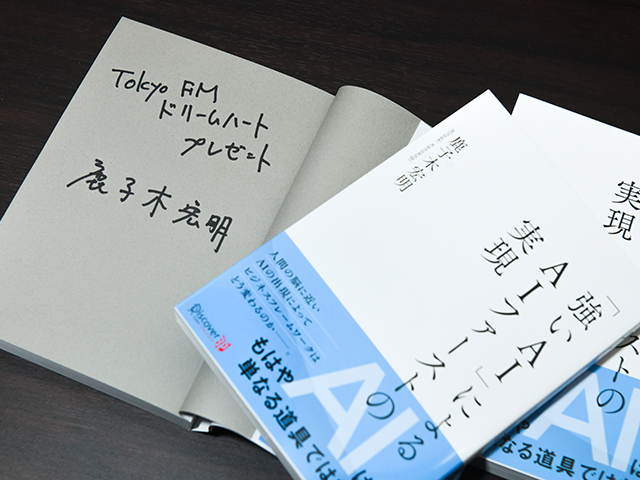 Tokyo FM
ドリームハート
プレゼント
鹿子木宏明
鹿子木宏明
「強いAI」による
AIファーストの
実現
人間の脳に近い
AIの出現によって
ビジネスフレームワークは
どう変わるのか――。
Discover
21
AI
もはや
単なる道具では
実現
トの
AI
は
なる道具では